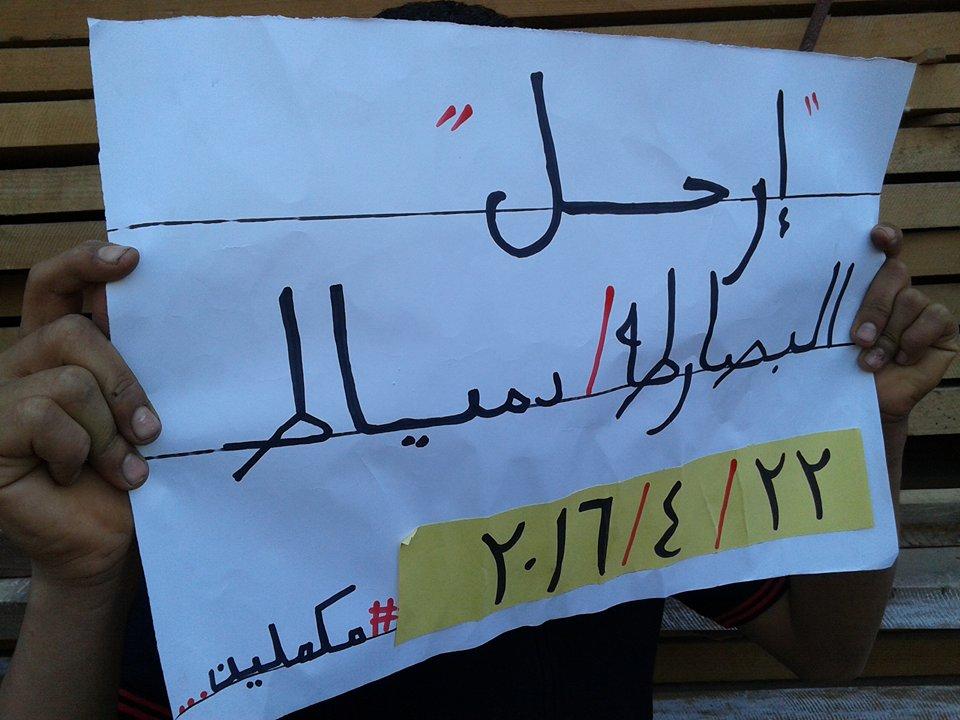 "إرحل"
البصارطه/دمياط
٢٢/٤/٢٠١٦
#مكملين...